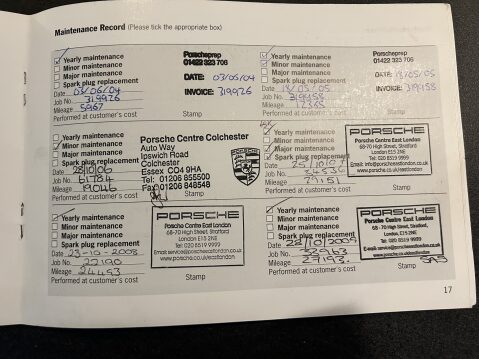 Maintenance Record (Please tick the appropriate box)
Yearly maintenance
Minor maintenance
Major maintenance
Spark plug replacement
Date 03/06/04
Job No. 319926
Mileage 5967
Performed at customer's cost
Porscheprep
01422 323 706
DATE: 03/05/04
INVOICE: 319926
Stamp
Yearly maintenance
Minor maintenance
Major maintenance
Spark plug replacement
Date 18/05/05
Job No. 319458
Mileage
Performed at customer's cost
Porscheprep
01422 323 706
DATE: 18/05/05
INVOICE: 319458
Stamp
Yearly maintenance
Minor maintenance
Major maintenance
Spark plug replacement
Date 28/10/06
Job No. 61784
Mileage 19046
Performed at customer's cost
Porsche Centre Colchester
Auto Way
Ipswich Road
Colchester
Essex CO4 9HA
Tel: 01206 855500
Fax 01206 848548
Stamp
Yearly maintenance
Minor maintenance
Major maintenance
Spark plug replacement
Date 25/10/07
Job No. 24536
Mileage
Performed at customer's cost
PORSCHE
Porsche Centre East London
68-70 High Street, Stratford
London E15 2NE
Tel: 020 8519 9999
Email: service@porscheeastlondon.co.uk
www.porsche.co.uk/eastlondon
Stamp
Yearly maintenance
Minor maintenance
Major maintenance
Spark plug replacement
Date 23-10-2008
Job No. 27190
Mileage 24453
Performed at customer's cost
PORSCHE
Porsche Centre East London
68-70 High Street, Stratford
London E15 2NE
Tel: 020 8519 9999
Email: service@porscheeastlondon.co.uk
www.porsche.co.uk/eastlondon
Stamp
Yearly maintenance
Minor maintenance
Major maintenance
Spark plug replacement
Date 22/10/2009
Job No.
Mileage 27193
Performed at customer's cost
PORSCHE
Porsche Centre East London
68-70 High Street, Stratford
London E15 2NE
Tel: 020 8519 9999
Email: service@porscheeastlondon.co.uk
www.porsche.co.uk/eastlondon
Stamp
17